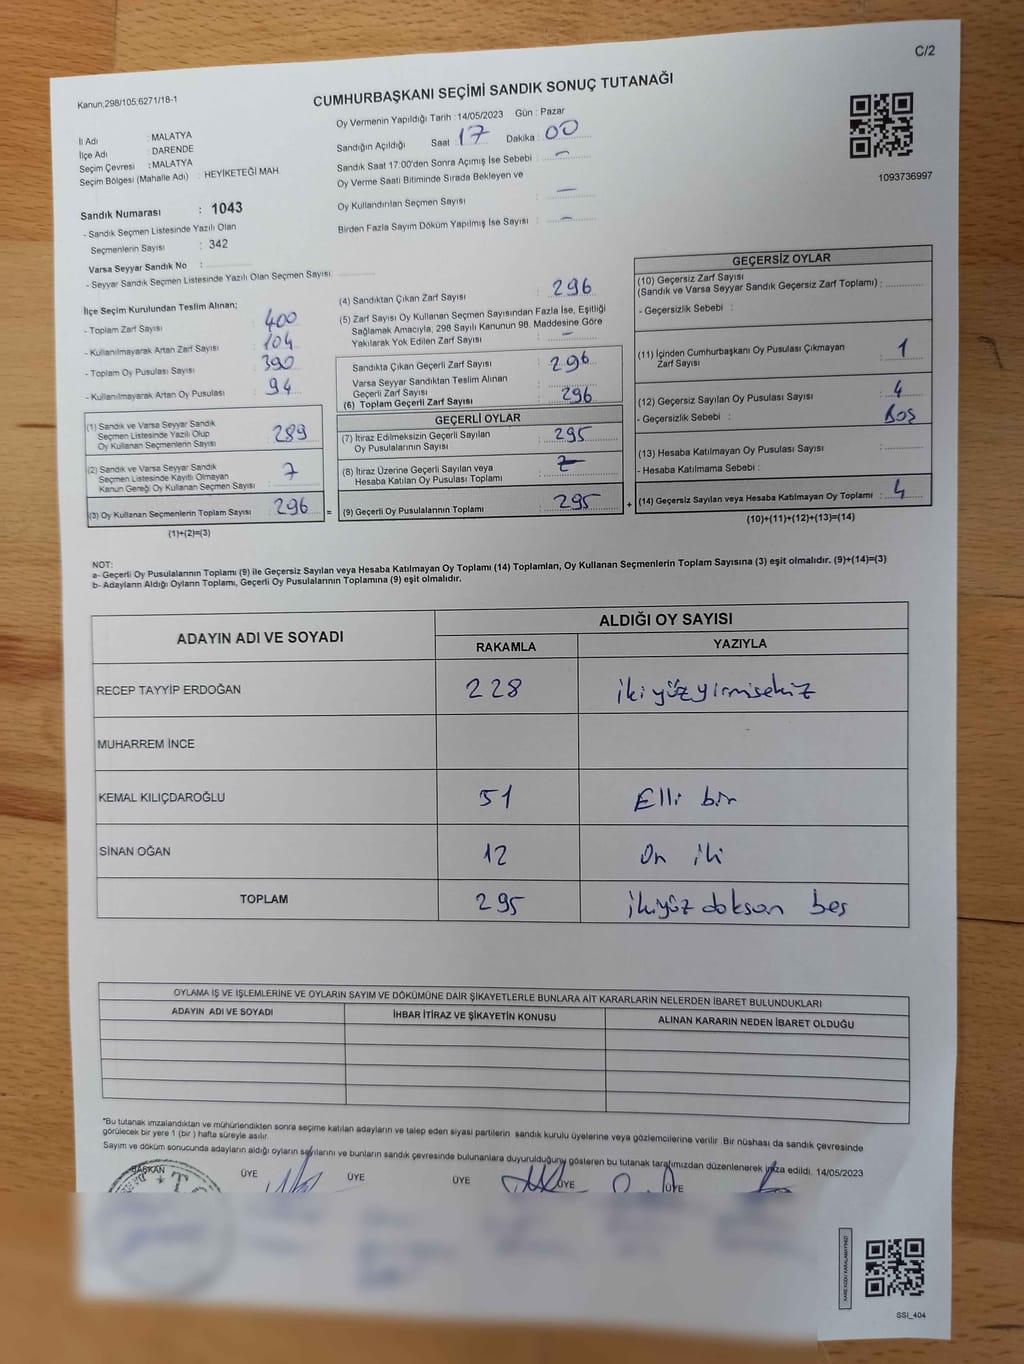 C/2
Kanun,298/105;6271/18-1
CUMHURBAŞKANI SEÇİMİ SANDIK SONUÇ TUTANAĞI
İl Adı : MALATYA
İlçe Adı : DARENDE
Seçim Çevresi : MALATYA
Seçim Bölgesi (Mahalle Adı) : HEYİKETEĞİ MAH.
Oy Vermenin Yapıldığı Tarih : 14/05/2023 Gün : Pazar
Sandığın Açıldığı Saat 17 Dakika : 00
Sandık Saat 17:00'den Sonra Açımış İse Sebebi : —
Oy Verme Saati Bitiminde Sırada Bekleyen ve
Oy Kullandırılan Seçmen Sayısı : —
Birden Fazla Sayım Döküm Yapılmış İse Sayısı : —
1093736997
Sandık Numarası : 1043
- Sandık Seçmen Listesinde Yazılı Olan
Seçmenlerin Sayısı : 342
Varsa Seyyar Sandık No :
- Seyyar Sandık Seçmen Listesinde Yazılı Olan Seçmen Sayısı:
İlçe Seçim Kurulundan Teslim Alınan;
- Toplam Zarf Sayısı : 400
- Kullanılmayarak Artan Zarf Sayısı : 104
- Toplam Oy Pusulası Sayısı : 390
- Kullanılmayarak Artan Oy Pusulası : 94
(1) Sandık ve Varsa Seyyar Sandık
Seçmen Listesinde Yazılı Olup
Oy Kullanan Seçmenlerin Sayısı : 289
(2) Sandık ve Varsa Seyyar Sandık
Seçmen Listesinde Kayıtlı Olmayan
Kanun Gereği Oy Kullanan Seçmen Sayısı : 7
(3) Oy Kullanan Seçmenlerin Toplam Sayısı : 296 =
(1)+(2)=(3)
(4) Sandıktan Çıkan Zarf Sayısı : 296
(5) Zarf Sayısı Oy Kullanan Seçmen Sayısından Fazla İse, Eşitliği
Sağlamak Amacıyla, 298 Sayılı Kanunun 98. Maddesine Göre
Yakılarak Yok Edilen Zarf Sayısı : —
Sandıkta Çıkan Geçerli Zarf Sayısı : 296
Varsa Seyyar Sandıktan Teslim Alınan
Geçerli Zarf Sayısı :
(6) Toplam Geçerli Zarf Sayısı : 296
GEÇERLİ OYLAR
(7) İtiraz Edilmeksizin Geçerli Sayılan
Oy Pusulalarının Sayısı : 295
(8) İtiraz Üzerine Geçerli Sayılan veya
Hesaba Katılan Oy Pusulası Toplamı :
(9) Geçerli Oy Pusulalarının Toplamı : 295 +
GEÇERSİZ OYLAR
(10) Geçersiz Zarf Sayısı
(Sandık ve Varsa Seyyar Sandık Geçersiz Zarf Toplamı) :
- Geçersizlik Sebebi :
(11) İçinden Cumhurbaşkanı Oy Pusulası Çıkmayan
Zarf Sayısı : 1
(12) Geçersiz Sayılan Oy Pusulası Sayısı : 4
- Geçersizlik Sebebi : Boş
(13) Hesaba Katılmayan Oy Pusulası Sayısı :
- Hesaba Katılmama Sebebi :
(14) Geçersiz Sayılan veya Hesaba Katılmayan Oy Toplamı : 4
(10)+(11)+(12)+(13)=(14)
NOT:
a- Geçerli Oy Pusulalarının Toplamı (9) ile Geçersiz Sayılan veya Hesaba Katılmayan Oy Toplamı (14) Toplamları, Oy Kullanan Seçmenlerin Toplam Sayısına (3) eşit olmalıdır. (9)+(14)=(3)
b- Adayların Aldığı Oyların Toplamı, Geçerli Oy Pusulalarının Toplamına (9) eşit olmalıdır.
ADAYIN ADI VE SOYADI
ALDIĞI OY SAYISI
RAKAMLA YAZIYLA
RECEP TAYYİP ERDOĞAN 228 ikiyüzyirmisekiz
MUHARREM İNCE
KEMAL KILIÇDAROĞLU 51 Elli bir
SİNAN OĞAN 12 On iki
TOPLAM 295 ikiyüz doksan beş
OYLAMA İŞ VE İŞLEMLERİNE VE OYLARIN SAYIM VE DÖKÜMÜNE DAİR ŞİKAYETLERLE BUNLARA AİT KARARLARIN NELERDEN İBARET BULUNDUKLARI
ADAYIN ADI VE SOYADI İHBAR İTİRAZ VE ŞİKAYETİN KONUSU ALINAN KARARIN NEDEN İBARET OLDUĞU
*Bu tutanak imzalandıktan ve mühürlendikten sonra seçime katılan adayların ve talep eden siyasi partilerin sandık kurulu üyelerine veya gözlemcilerine verilir. Bir nüshası da sandık çevresinde
görülecek bir yere 1 (bir) hafta süreyle asılır.
Sayım ve döküm sonucunda adayların aldığı oyların sayılarını ve bunların sandık çevresinde bulunanlara duyurulduğunu gösteren bu tutanak tarafımızdan düzenlenerek imza edildi. 14/05/2023
BAŞKAN ÜYE ÜYE ÜYE ÜYE ÜYE
KARE KODU KARALAMAYINIZ!
SSI_404